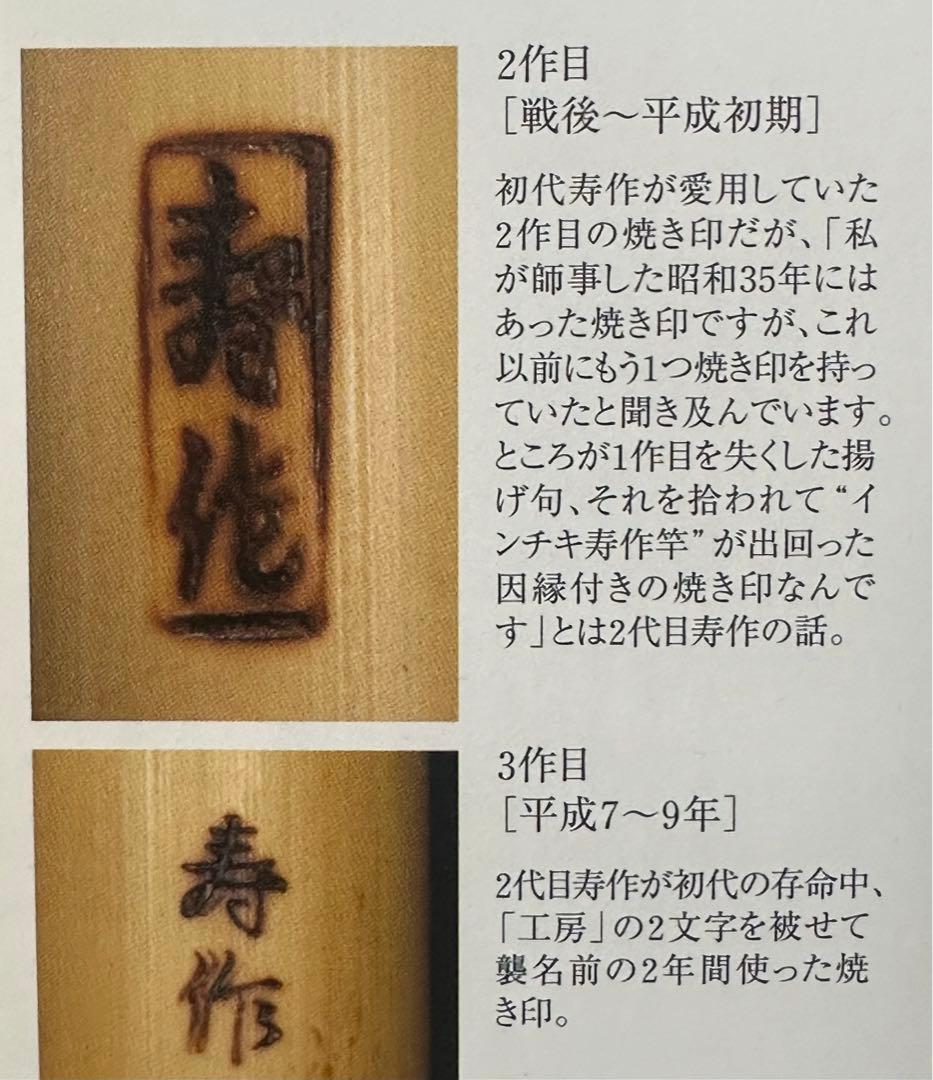 寿作
2作目
［戦後〜平成初期］
初代寿作が愛用していた
2作目の焼き印だが、「私
が師事した昭和35年には
あった焼き印ですが、これ
以前にもう1つ焼き印を持っ
ていたと聞き及んでいます。
ところが1作目を失くした揚
げ句、それを拾われて“イ
ンチキ寿作竿”が出回った
因縁付きの焼き印なんで
す」とは2代目寿作の話。
寿作
3作目
［平成7〜9年］
2代目寿作が初代の存命中、
「工房」の2文字を被せて
襲名前の2年間使った焼
き印。